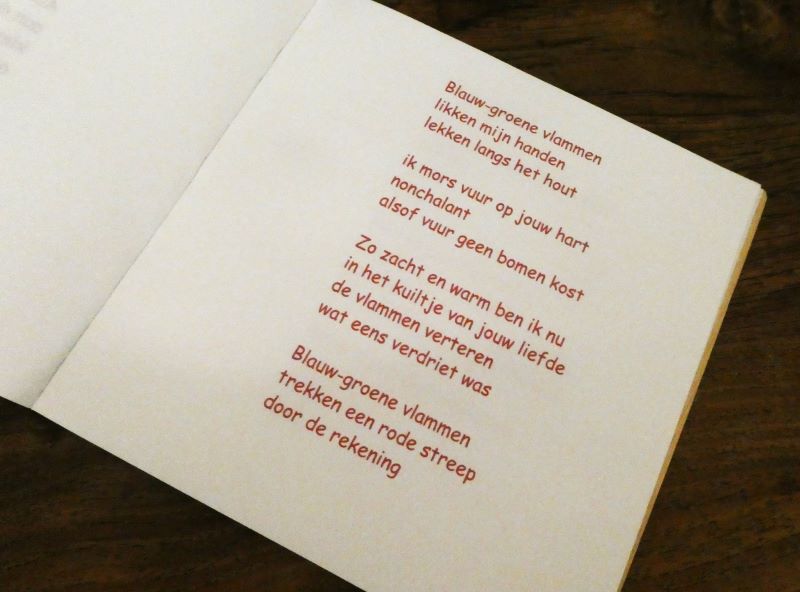 Blauw-groene vlammen
likken mijn handen
lekken langs het hout
ik mors vuur op jouw hart
nonchalant
alsof vuur geen bomen kost
Zo zacht en warm ben ik nu
in het kuiltje van jouw liefde
de vlammen verteren
wat eens verdriet was
Blauw-groene vlammen
trekken een rode streep
door de rekening